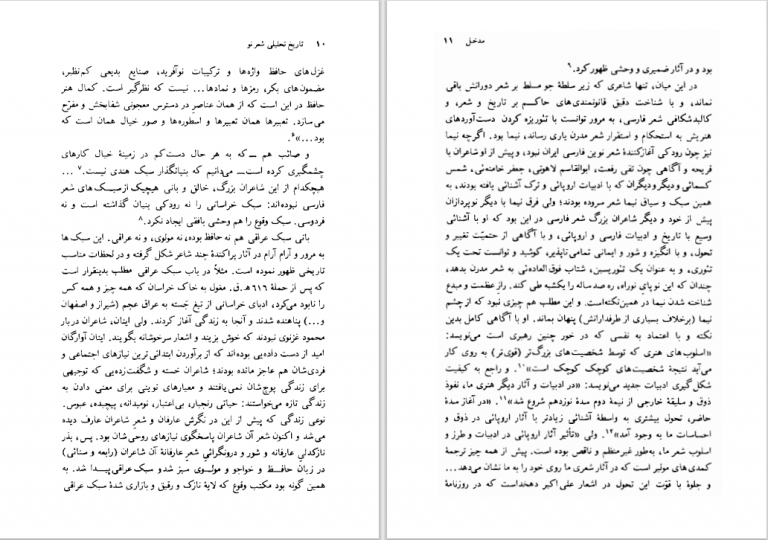 ۱۰ تاریخ تحلیلی شعر نو
غزل‌های حافظ واژه‌ها و ترکیبات نوآفرید، صنایع بدیعی کم‌نظیر،
مضمون‌های بکر، رمزها و نمادها... نیست که نظرگیر است. کمال هنر
حافظ در این است که از همان عناصرِ در دسترس معجونی شفابخش و مفرّح
می‌سازد. تعبیرها همان تعبیرها و اسطوره‌ها و صور خیال همان است که
بود...»۶.
و صائب هم ــ که به هر حال دست‌کم در زمینهٔ خیال کارهای
چشمگیری کرده است ــ می‌دانیم که بنیانگذار سبک هندی نیست.۷ ...
هیچکدام از این شاعران بزرگ، خالق و بانی هیچیک از سبک‌های شعر
فارسی نبوده‌اند: سبک خراسانی را نه رودکی بنیان گذاشته است و نه
فردوسی. سبک وقوع را هم وحشی بافقی ایجاد نکرد.۸
بانی سبک عراقی هم نه حافظ بوده، نه مولوی، و نه عراقی. این سبک‌ها
به مرور و آرام آرام در آثار پراکندهٔ چند شاعر شکل گرفته و در لحظات مناسب
تاریخی ظهور نموده است. مثلاً در باب سبک عراقی مطلب بدینقرار است
که پس از حملهٔ ۶۱۶ ه‍.ق. مغول به خاک خراسان که همه چیز و همه کس
را نابود می‌کرد، ادبای خراسانی از تیغ جَسته به عراق عجم (شیراز و اصفهان
و...) پناهنده شدند و آنجا به زندگی آغاز کردند. ولی اینان، شاعران دربار
محمود غزنوی نبودند که خوش بزیند و اشعار سرخوشانه بگویند. اینان آوارگان
امید از دست داده‌یی بوده‌اند که از برآوردن ابتدائی‌ترین نیازهای اجتماعی و
فردی‌شان هم عاجز مانده بودند؛ شاعران خسته و شگفت‌زده‌یی که توجیهی
برای زندگی پوچ‌شان نمی‌یافتند و معیارهای نوینی برای معنی دادن به
زندگی تازه می‌خواستند: حیاتی رنجبار، بی‌اعتبار، نومیدانه، پیچیده، عبوس.
نوعی زندگی که پیش از این در نگرش عارفان و شعرِ شاعران عارف دیده
می‌شد و اکنون شعر آن شاعران پاسخگوی نیازهای روحی‌شان بود. پس، بذر
نازکدلیِ عارفانه و شور و درونگرائیِ شعر عارفانهٔ آن شاعران (رابعه و سنائی)
در زبان حافظ و خواجو و مولوی سبز شد و سبک عراقی پیدا شد. به
همین گونه بود مکتب وقوع که لایهٔ نازک و رقیق و بازاری شدهٔ سبک عراقی
مدخل ۱۱
بود و در آثار ضمیری و وحشی ظهور کرد.۹
در این میان، تنها شاعری که زیر سلطهٔ جو مسلط بر شعر دورانش باقی
نماند، و با شناخت دقیق قانونمندی‌های حاکم بر تاریخ و شعر، و
کالبدشکافی شعر فارسی، به مرور توانست با تئوریزه کردن دست‌آوردهای
هنریش به استحکام و استقرار شعر مدرن یاری رساند، نیما بود. اگرچه نیما
نیز چون رودکی آغازکنندهٔ شعر نوین فارسی ایران نبود، و پیش از او شاعران با
قریحه و آگاهی چون تقی رفعت، ابوالقاسم لاهوتی، جعفر خامنه‌ئی، شمس
کسمائی و دیگر و دیگران که با ادبیات اروپائی و ترک آشنائی یافته بودند، به
همین سبک و سیاق نیما شعر سروده بودند؛ ولی فرق نیما با دیگر نوپردازان
پیش از خود و دیگر شاعران بزرگ شعر فارسی در این بود که او با آشنائی
وسیع با تاریخ و ادبیات فارسی و اروپائی، و با آگاهی از حتمیّت تغییر و
تحول، و با انگیزه و شور و ایمانی تمامی‌ناپذیر، کوشید و توانست تحت یک
تئوری، و به عنوان یک تئوریسین، شتاب فوق‌العاده‌ئی به شعر مدرن بدهد،
چندان که این نوپای نوراه، ره صد ساله را یکشبه طی کند. رازِ عظمت و مبدع
شناخته شدن نیما در همین نکته است. و این مطلب هم چیزی نبود که از چشم
نیما (برخلاف بسیاری از طرفدارانش) پنهان بماند. او با آگاهی کامل بدین
نکته و با اعتماد به نفسی که در خور چنین رهبری است می‌نویسد:
«اسلوب‌های هنری که توسط شخصیت‌های بزرگ‌تر (قوی‌تر) به روی کار
می‌آید نتیجهٔ شخصیت‌های کوچک کوچک است»۱۰. و راجع به کیفیت
شکل‌گیری ادبیات جدید می‌نویسد: «در ادبیات و آثار دیگر هنری ما، نفوذ
ذوق و سلیقهٔ خارجی از نیمهٔ دوم سدهٔ نوزدهم شروع شد»۱۱. «در آغاز سدهٔ
حاضر، تحول بیشتری به واسطهٔ آشنائی زیادتر با آثار اروپائی در ذوق و
احساسات ما به وجود آمد»۱۲. ولی «تأثیر آثار اروپائی در ادبیات و طرز و
اسلوب شعر ما، به‌طور غیرمنظم و ناقص بوده است. پیش از همه چیز ترجمهٔ
کمدی‌های مولیر است که در آثار شعری ما روی خود را به ما نشان می‌دهد...
و جلوهٔ با قوّت این تحول در اشعار علی‌اکبر دهخداست که در روزنامهٔ